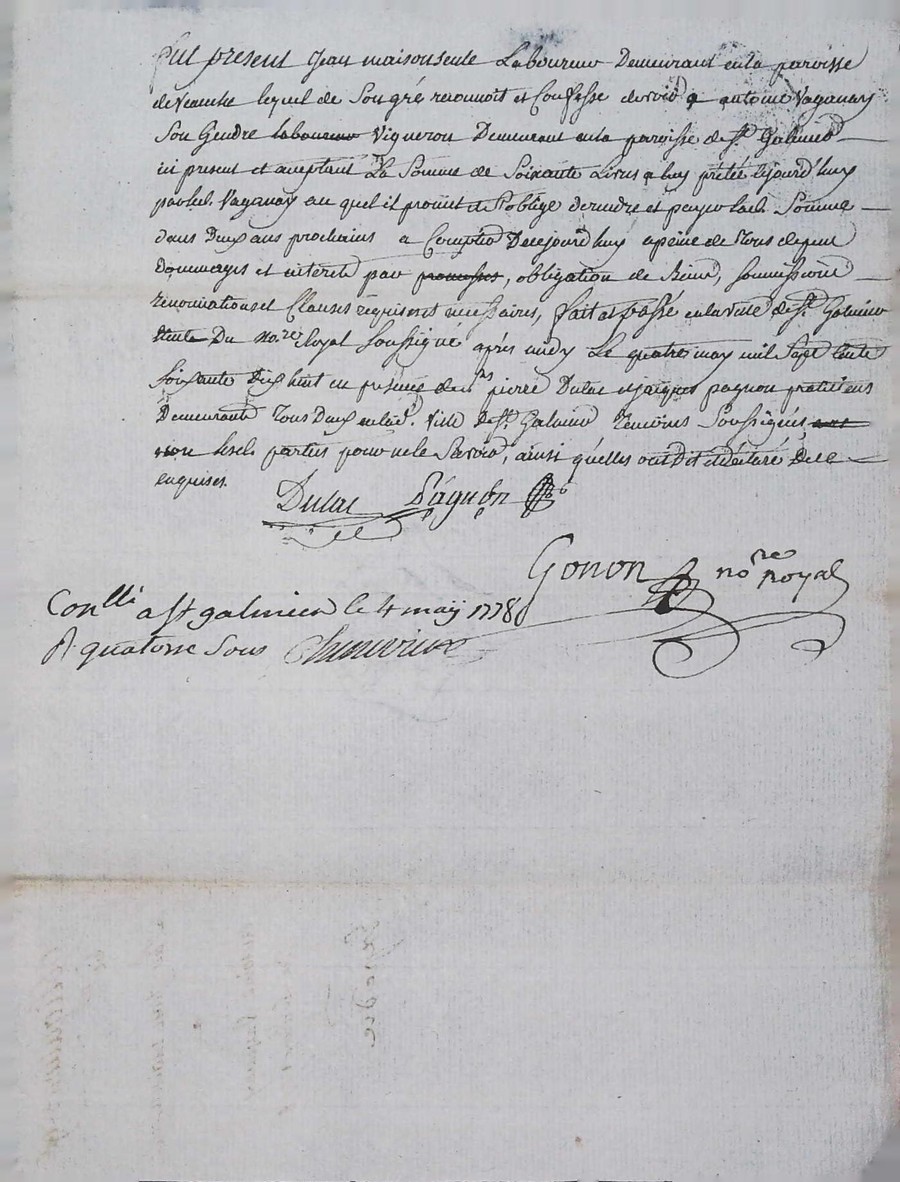 fut present Jean maisonseule Laboureur Demeurant en la paroisse
de veauche lequel de Son gré reconnoit et Confesse devoir a antoine Vaganay
Son Gendre laboureur Vigneron Demeurant en la paroisse de st. Galmier
ici present et acceptant La Somme de Soixante Livres a luy prétée cejourd'huy
par led. Vaganay au quel il promet et S'oblige de rendre et payer lad. Somme
dans Deux ans prochains a Compter De cejourd'huy a peine de tous depens
Dommages et interets par promesses, obligation de Biens, soumissions
renonciations et Clauses requises et necessaires, fait et passé en la ville de st. Galmier
Etude Du no.re Royal Soussigné après midy Le quatre may mil Sept Cents
Soixante Dix huit en presence de mrs pierre Dulac et jacques pagnon praticiens
Demeurants Tous Deux en lad. ville De st. Galmier Temoins Soussignés
non lesd. parties pour ne le Savoir, ainsi qu'elles ont Dit et declaré De ce
enquises.
Dulac Pagnon
Gonon no.re royal
Con.llé a st galmier le 4 maÿ 1778
R. quatorse sous